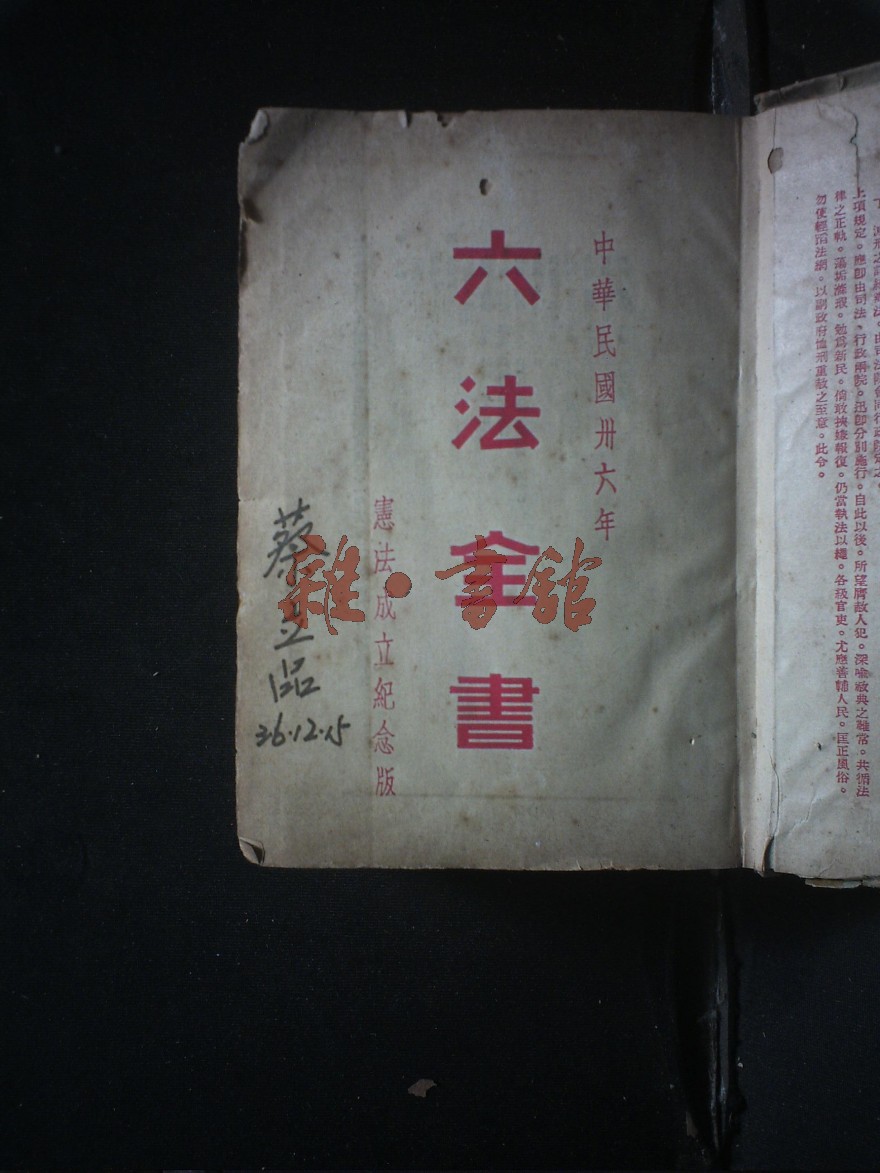 上項規定。應卽由司法、行政兩院。迅卽分別施行。自此以後。所望膺赦人犯。深喻赦典之難常。共循法
律之正軌。蕩垢滌瑕。勉爲新民。倘敢挾嫌報復。仍當執法以繩。各級官吏。尤應善輔人民。匡正風俗。
勿使輕罹法網。以副政府恤刑重赦之至意。此令。
中華民國卅六年
六法全書
憲法成立紀念版
蔡立品
36.12.15
雜·書館